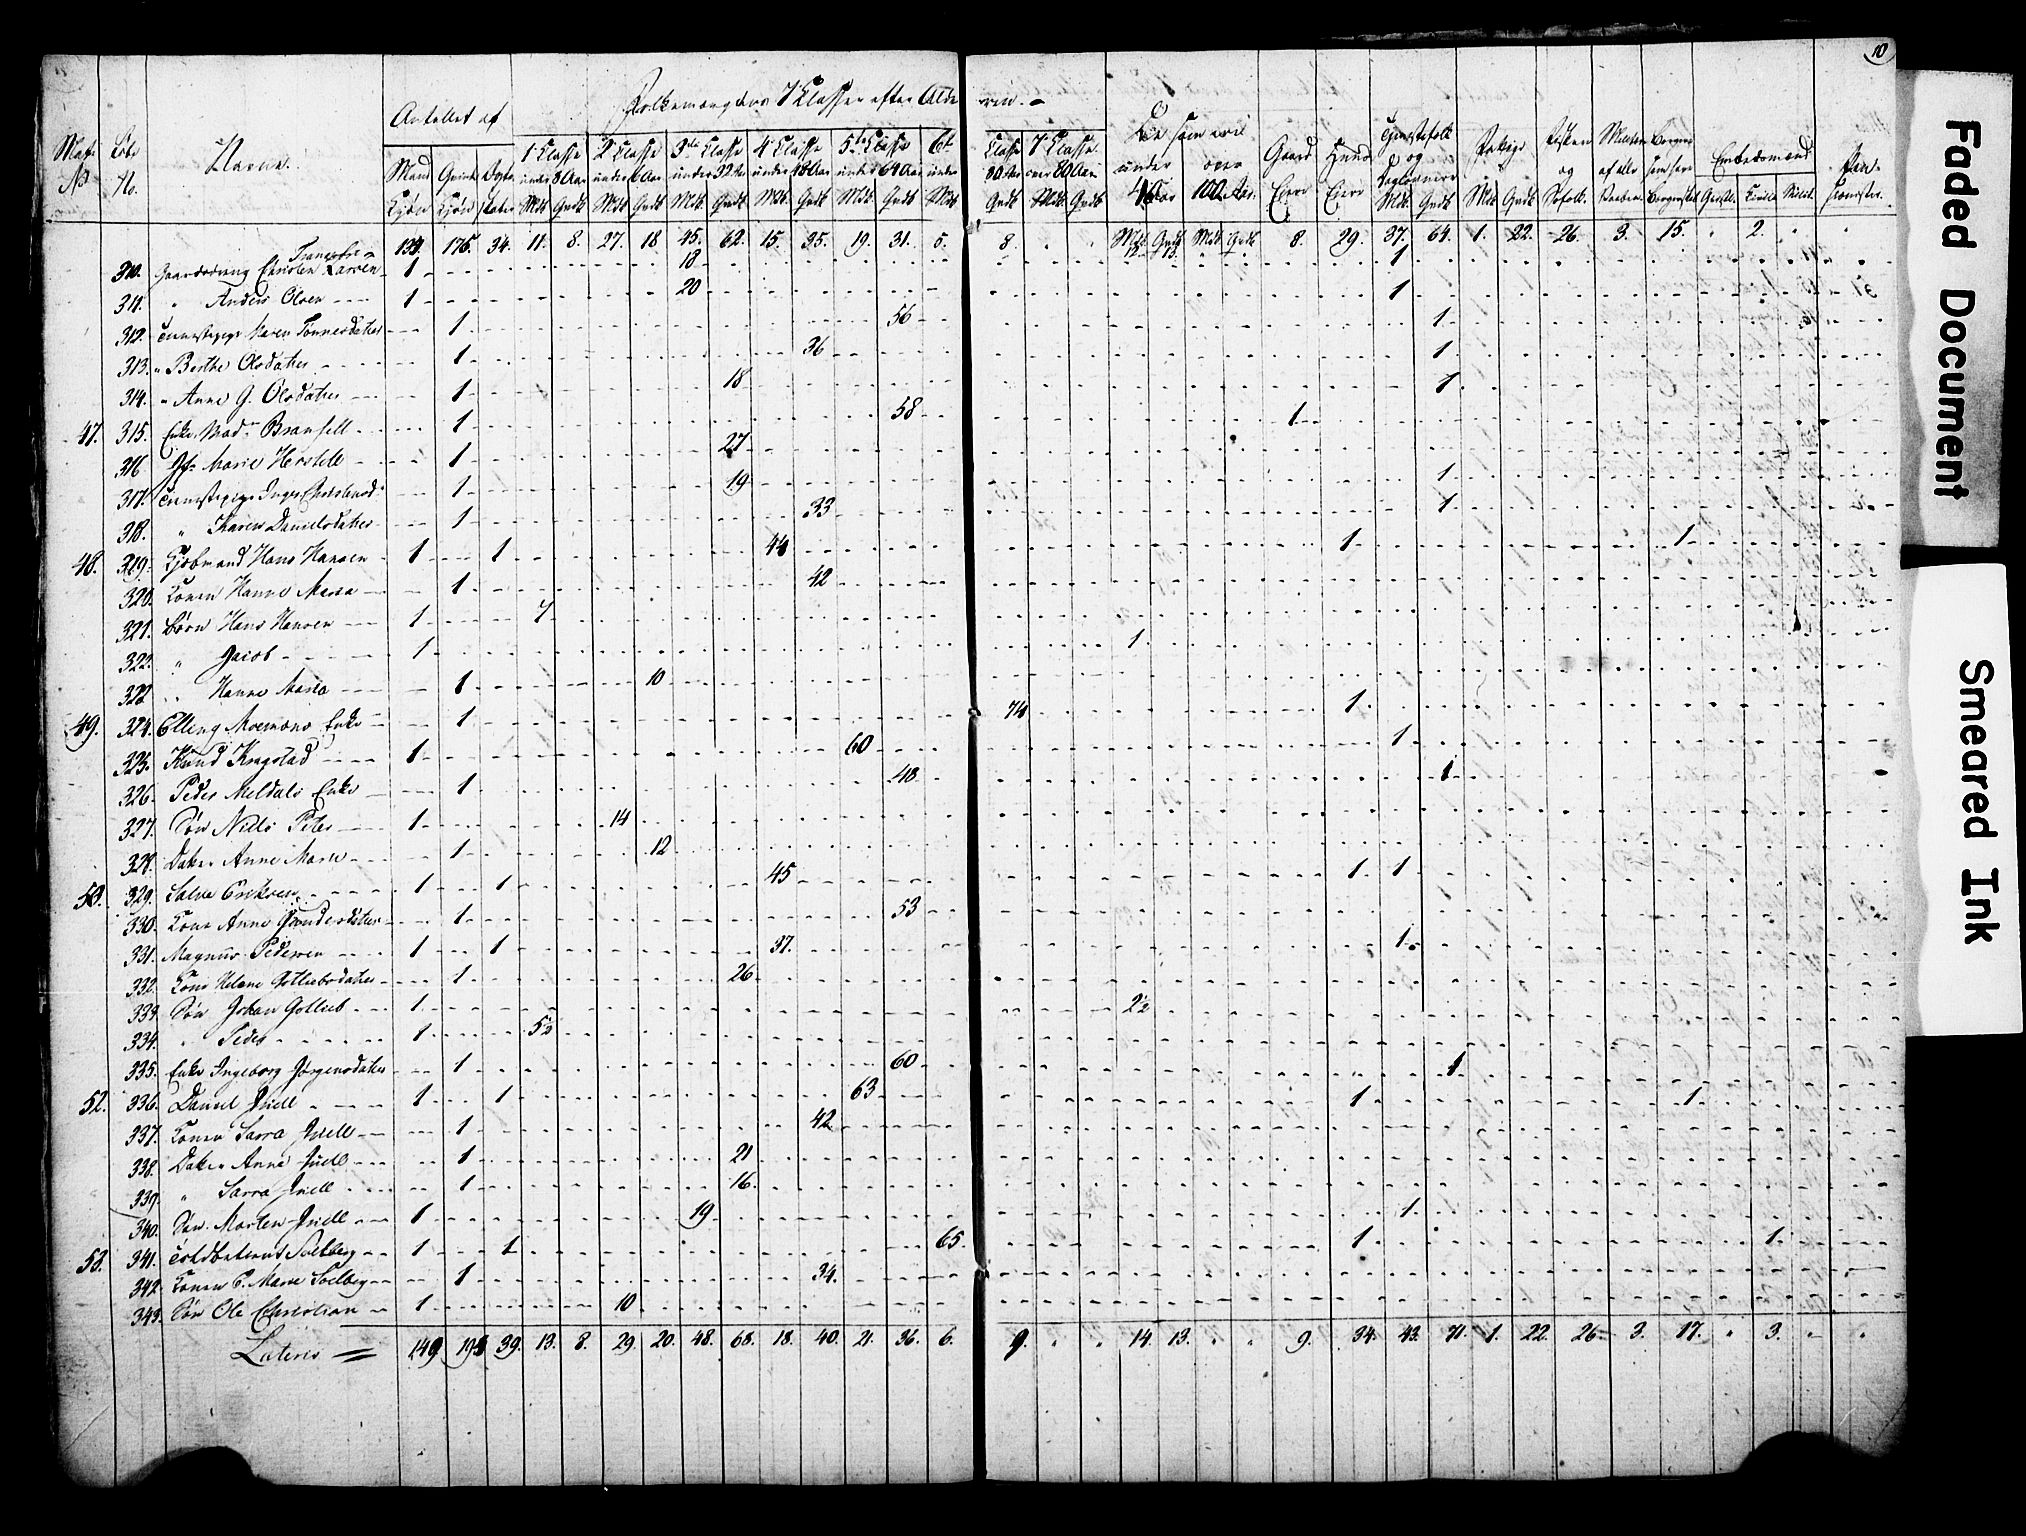 10
Antallet af
Folkemængdens 7 Classer efter Alde ren.
Matr No
Løbe No.
Navne.
Mand Kjøn
Qvinde Kjøn
1 Classe under 8 Aar
2 Classe
3de Classe under 32 Aar
4 Classe under 48 Aar
5te Classe under 64 Aar
6te under
Classe 80 Aar
7 Classe over 80 Aar
De som ere under over 100 Aar.
Gaard Eiere
Huus Eiere
Tjenestefolk og
Fattige
Embedsmænd
Mdk. Qvdk Mdk Qvdk
Transport 134 176. 34. 11. 8. 27. 18 45. 62. 15. 35. 19. 31. 5. 8. 12 13. 8. 29. 37. 64. 1. 22. 26. 3. 15. 2.
310. Gaardsdreng Christen Larsen 1 18 1
311. " Anders Olsen 1 20 1
312. Tjenestepige Maren Tønnesdatter 1 56 1
313. " Berthe Olsdatter 1 36 1
314. " Anne G. Olsdatter 1 18 1
47. 315. Enke Mad. Bransell 1 58 1
316 Jfr Marie Herstell 1 27
317. Tjenestepige Inger Christensd: 1 19 1
318. " Karen Danielsdatter 1 33 1
48. 319. Kjøbmand Hans Hansen 1 1 44 1 1
320. Konen Hanne Maria 1 42
321. Børn Hans Hansen 1 7
322. " Jacob 1 1
322 " Hanne Maria 1 10
49. 324. Elling Moemans Enke 1 74 1
325. Knud Kragstad 1 60 1
326. Peder Meldals Enke 1 48 1
327. Søn Niels Peter 1 14
328. Datter Anne Marie 1 12
50. 329. Salve Eriksen 1 1 45 1 1
330. Kone Anne Gundersdatter 1 53
331. Magnus Pedersen 1 1 37. 1
332. Kone Helene Gotliebsdatter 1 26
333. Søn Johan Gotlieb 1 2½
334. " Peder 1 5½
335. Enke Ingeborg Jørgensdatter 1 60 1
52. 336. Daniel Juell 1 1 63 1 1
337. Konen Sarra Juell 1 42
338. Datter Anne Juell 1 21
339. " Sarra Juell 1 16
340. Søn Morten Juell 1 19 1
53. 341. Toldbetient Solberg 1 1 65. 1 1
342. Konen C. Marie Solberg 1 34.
343. Søn Ole Christian 1 10
Lateris 149 195 39. 13. 8. 29. 20. 48. 68. 18. 40. 21. 36. 6. 9. 14. 13. 9. 34. 43. 71. 1. 22. 26. 3. 17. 3.
Faded Document
Smeared Ink